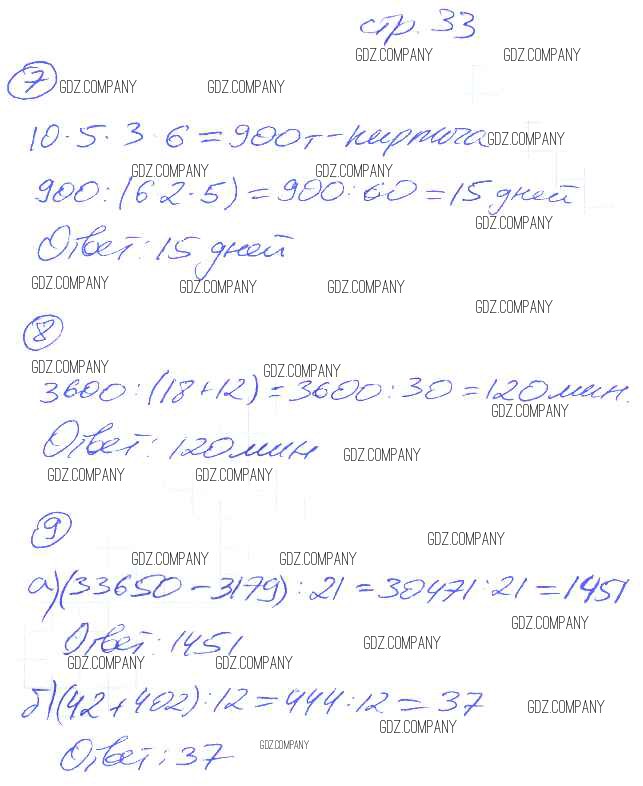 стр. 33
GDZ.COMPANY GDZ.COMPANY
7 GDZ.COMPANY GDZ.COMPANY
10·5·3·6=900т-кирпича GDZ.COMPANY
GDZ.COMPANY GDZ.COMPANY
900:(6 2·5)=900:60=15 дней
GDZ.COMPANY
Ответ: 15 дней
GDZ.COMPANY GDZ.COMPANY GDZ.COMPANY
GDZ.COMPANY
8
GDZ.COMPANY GDZ.COMPANY
3600:(18+12)=3600:30=120 мин.
GDZ.COMPANY
Ответ: 120 мин GDZ.COMPANY
GDZ.COMPANY GDZ.COMPANY
9
GDZ.COMPANY
GDZ.COMPANY GDZ.COMPANY
а)(33650-3179):21=30471:21=1451
GDZ.COMPANY
Ответ: 1451 GDZ.COMPANY
GDZ.COMPANY GDZ.COMPANY
б)(42+402):12=444:12=37 GDZ.COMPANY
GDZ.COMPANY
Ответ: 37 GDZ.COMPANY